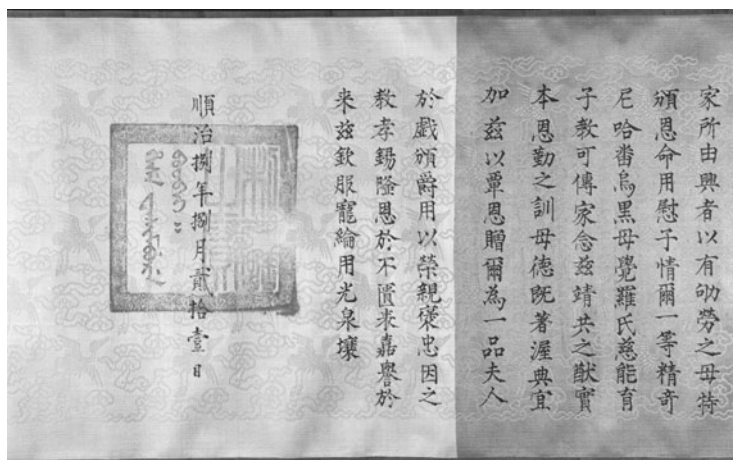 家所由興者以有劬勞之母特
頒恩命用慰子情爾一等精奇
尼哈番烏黑母覺羅氏慈能育
子教可傳家念茲靖共之猷實
本恩勤之訓母德旣著渥典宜
加茲以覃恩贈爾為一品夫人
於戲頒爵用以榮親褒忠因之
教孝錫隆恩於不匱永嘉譽於
来茲欽服寵綸用光泉壤
順治捌年捌月貳拾壹日